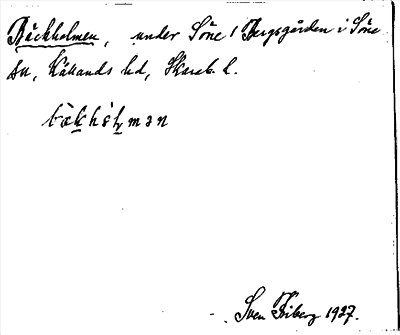 Bäckholmen, under Söne (Bergsgården i Söne
sn, Kållands hd, Skarab. l.
Sven Friberg 1927.